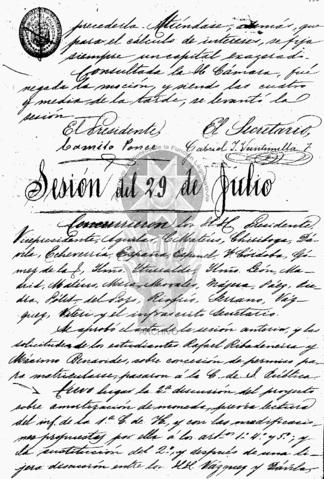 precederla. Atiéndase, además, que
para el cálculo de intereses, se fija
siempre un capital exagerado.
Consultada la H. Cámara, fué
negada la moción, y siendo las cuatro
y media de la tarde, se levantó la
sesión.
El Presidente, El Secretario,
Camilo Ponce Gabriel I. Veintemilla
Sesión del 29 de Julio
Concurrieron los HH. Presidente,
Vicepresidente, Aguirre, Chiriboga,
Echeverría, Espinosa, Córdoba, Gó-
mez de la
Matéus, Mera, Morales, Páez,
Pólit, del Pozo, Riofrío, Serrano, Váz-
quez, Viteri y el infrascrito Secretario.
Se aprobó el acta de la sesión anterior, y las
solicitudes de los estudiantes Rafael Ribadeneira y
Máximo sobre concesión de permiso pa-
ra matricularse, pasaron á la C. de I. Pública.
Tuvo lugar la 2ª discusión del proyecto
sobre amortización de moneda, previa lectura
del inf. de la 1ª C. de H., y con las modificacio-
nes propuestas por ella á los artos 1º 4º y 5º; y
la sustitución del 2º, y después de una li-
jera discusión entre los HH. Vázquez y